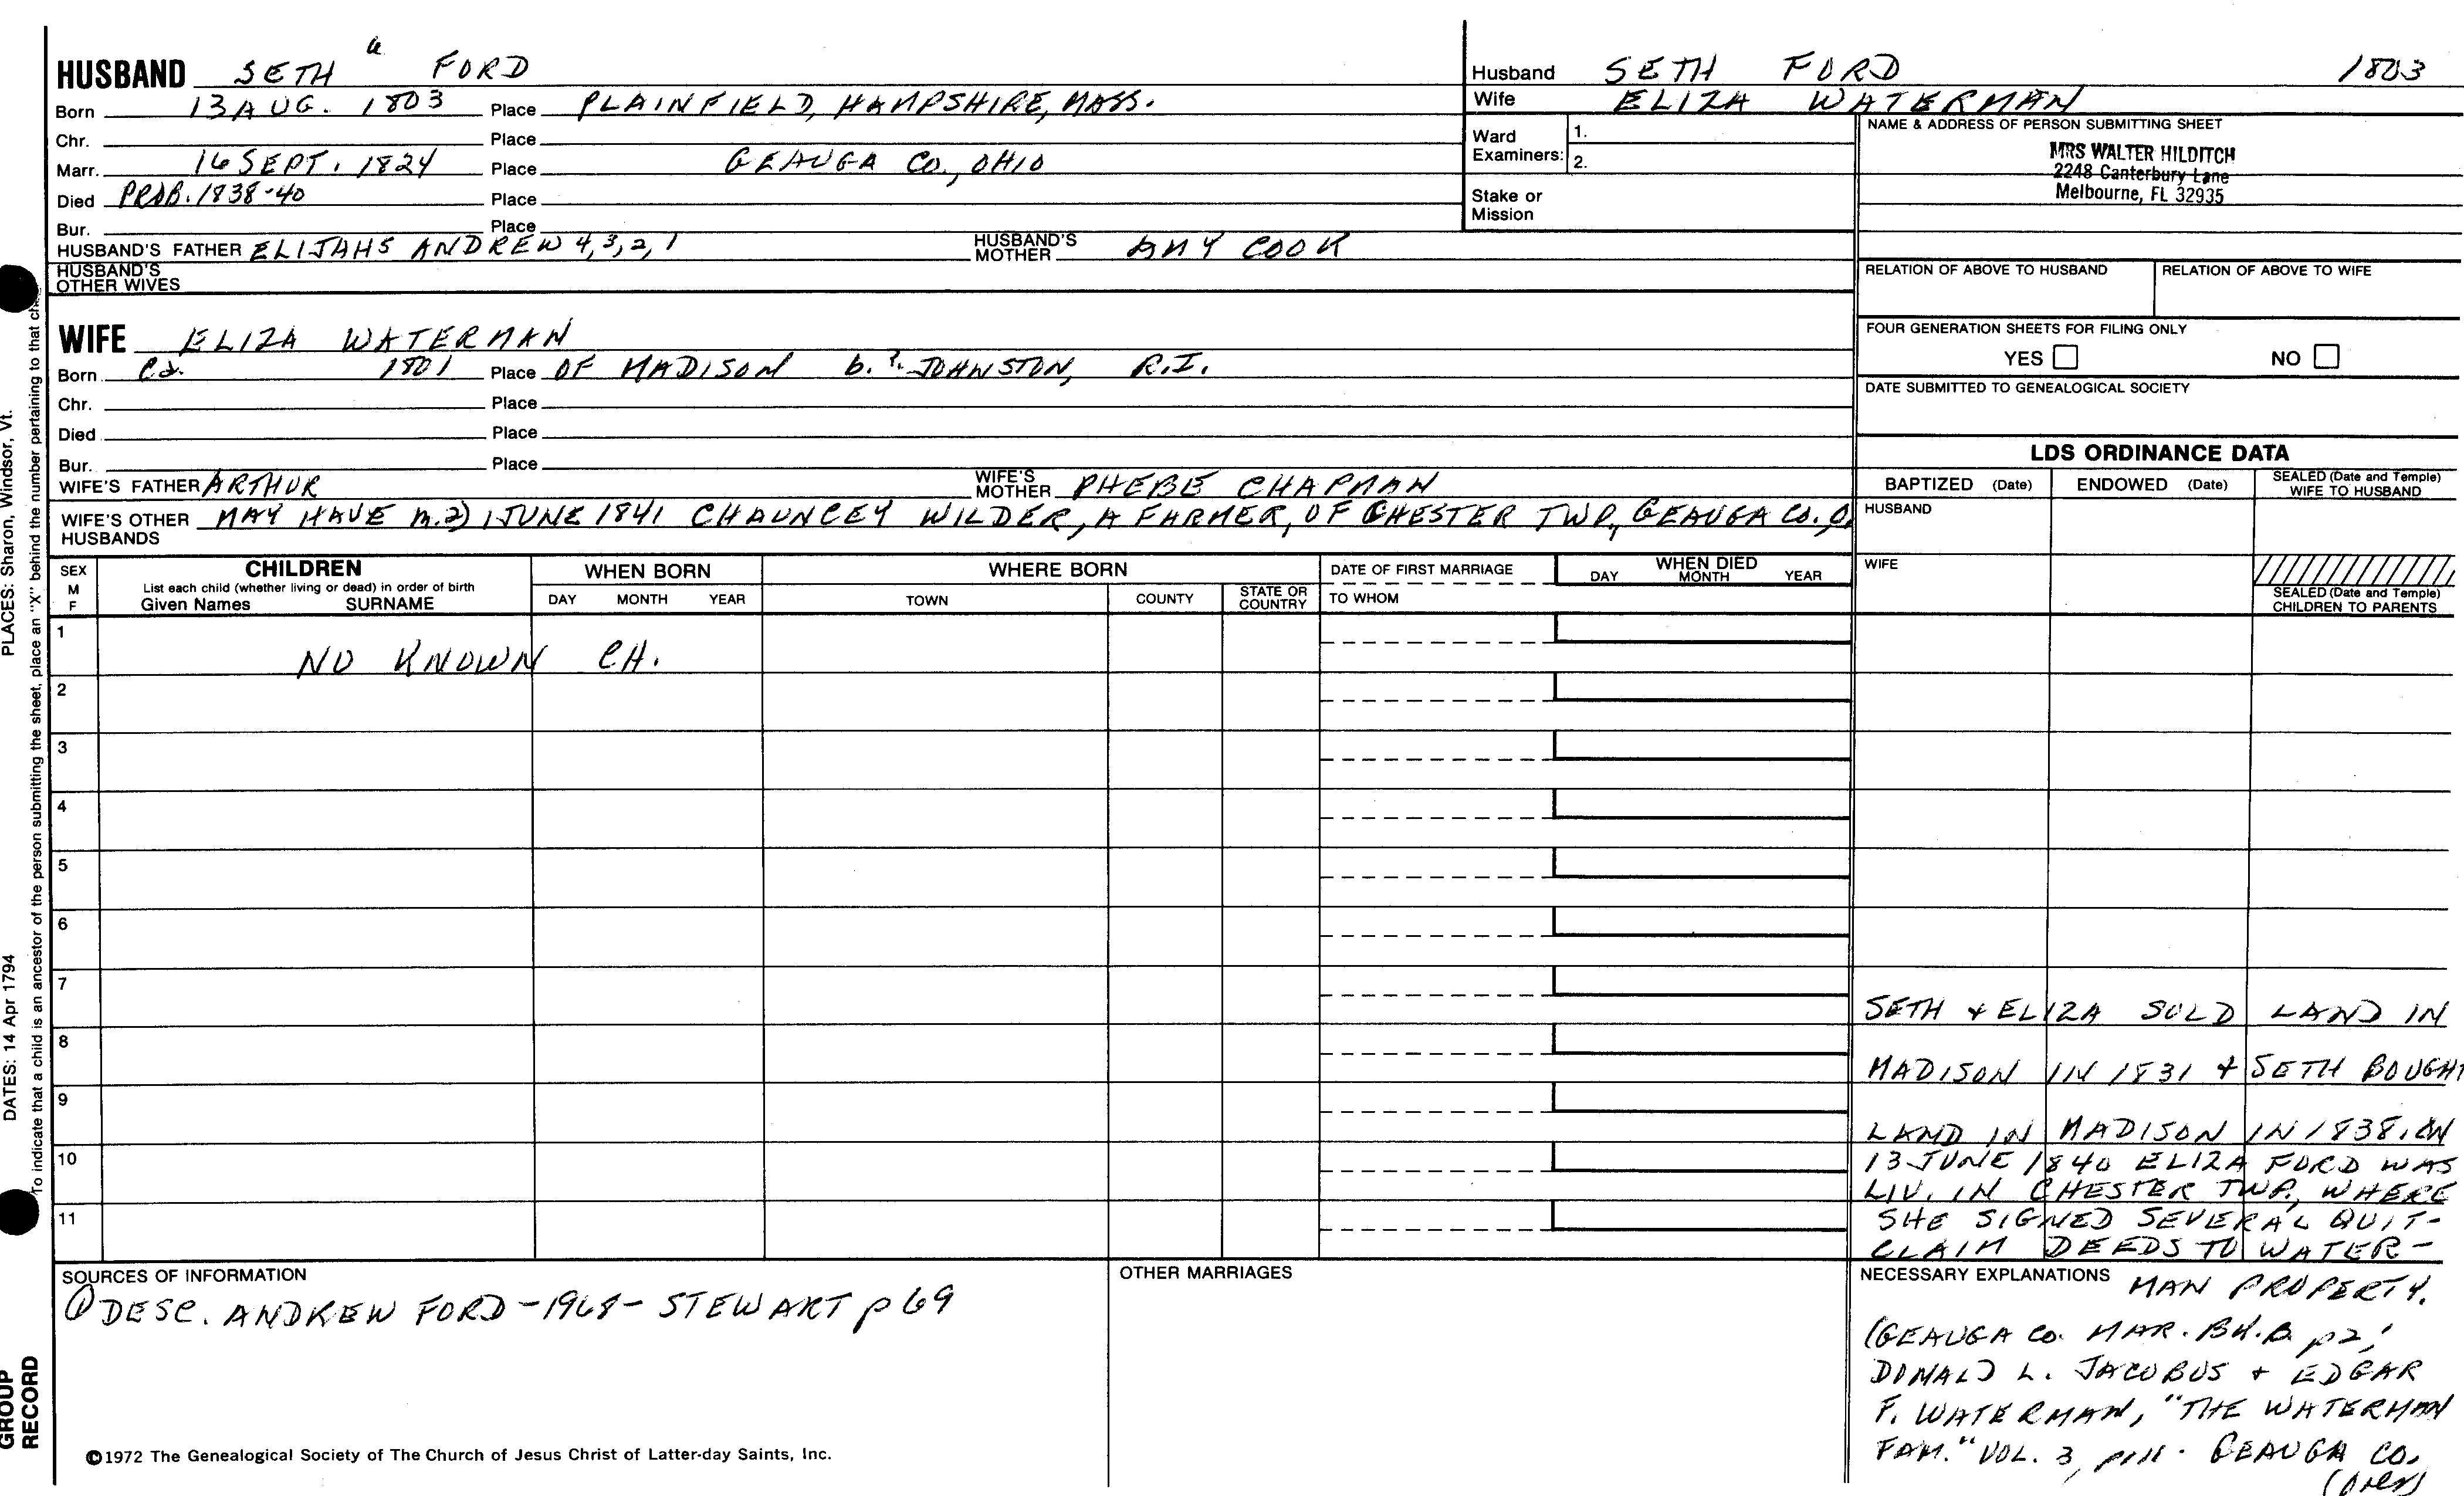 HUSBAND SETH 6 FORD
Born 13 AUG. 1803 Place PLAINFIELD, HAMPSHIRE, MASS.
Chr. Place
Marr. 16 SEPT. 1824 Place GEAUGA CO., OHIO
Died PROB. 1838-40 Place
Bur. Place
HUSBAND'S FATHER ELIJAH5 ANDREW 4,3,2,1 HUSBAND'S MOTHER AMY COOK
HUSBAND'S OTHER WIVES
Husband SETH FORD 1803
Wife ELIZA WATERMAN
Ward Examiners: 1.
2.
Stake or Mission
NAME & ADDRESS OF PERSON SUBMITTING SHEET
MRS WALTER HILDITCH
2248 Canterbury Lane
Melbourne, FL 32935
RELATION OF ABOVE TO HUSBAND RELATION OF ABOVE TO WIFE
FOUR GENERATION SHEETS FOR FILING ONLY
YES NO
DATE SUBMITTED TO GENEALOGICAL SOCIETY
WIFE ELIZA WATERMAN
Born Ca. 1801 Place OF MADISON b.? JOHNSTON, R.I.
Chr. Place
Died Place
Bur. Place
WIFE'S FATHER ARTHUR WIFE'S MOTHER PHEBE CHAPMAN
WIFE'S OTHER HUSBANDS MAY HAVE m.2) 1 JUNE 1841 CHAUNCEY WILDER, A FARMER, OF CHESTER TWP., GEAUGA CO. O.
LDS ORDINANCE DATA
BAPTIZED (Date) ENDOWED (Date) SEALED (Date and Temple) WIFE TO HUSBAND
HUSBAND
WIFE
SEALED (Date and Temple) CHILDREN TO PARENTS
SEX M F
CHILDREN
List each child (whether living or dead) in order of birth
Given Names SURNAME
WHEN BORN
DAY MONTH YEAR
WHERE BORN
TOWN COUNTY STATE OR COUNTRY
DATE OF FIRST MARRIAGE
TO WHOM
WHEN DIED
DAY MONTH YEAR
1 NO KNOWN CH.
2
3
4
5
6
7
8
9
10
11
SETH & ELIZA SOLD LAND IN
MADISON IN 1831 & SETH BOUGHT
LAND IN MADISON IN 1838. ON
13 JUNE 1840 ELIZA FORD WAS
LIV. IN CHESTER TWP., WHERE
SHE SIGNED SEVERAL QUIT-
CLAIM DEEDS TO WATER-
SOURCES OF INFORMATION
① DESC. ANDREW FORD-1968-STEWART p 69
OTHER MARRIAGES
NECESSARY EXPLANATIONS MAN PROPERTY.
(GEAUGA CO. MAR. BK.B p2;
DONALD L. JACOBUS & EDGAR
F. WATERMAN, "THE WATERMAN
FAM." VOL. 3, p111. GEAUGA CO.
(over)
©1972 The Genealogical Society of The Church of Jesus Christ of Latter-day Saints, Inc.
PLACES: Sharon, Windsor, Vt.
DATES: 14 Apr 1794
To indicate that a child is an ancestor of the person submitting the sheet, place an "X" behind the number pertaining to that
GROUP
RECORD